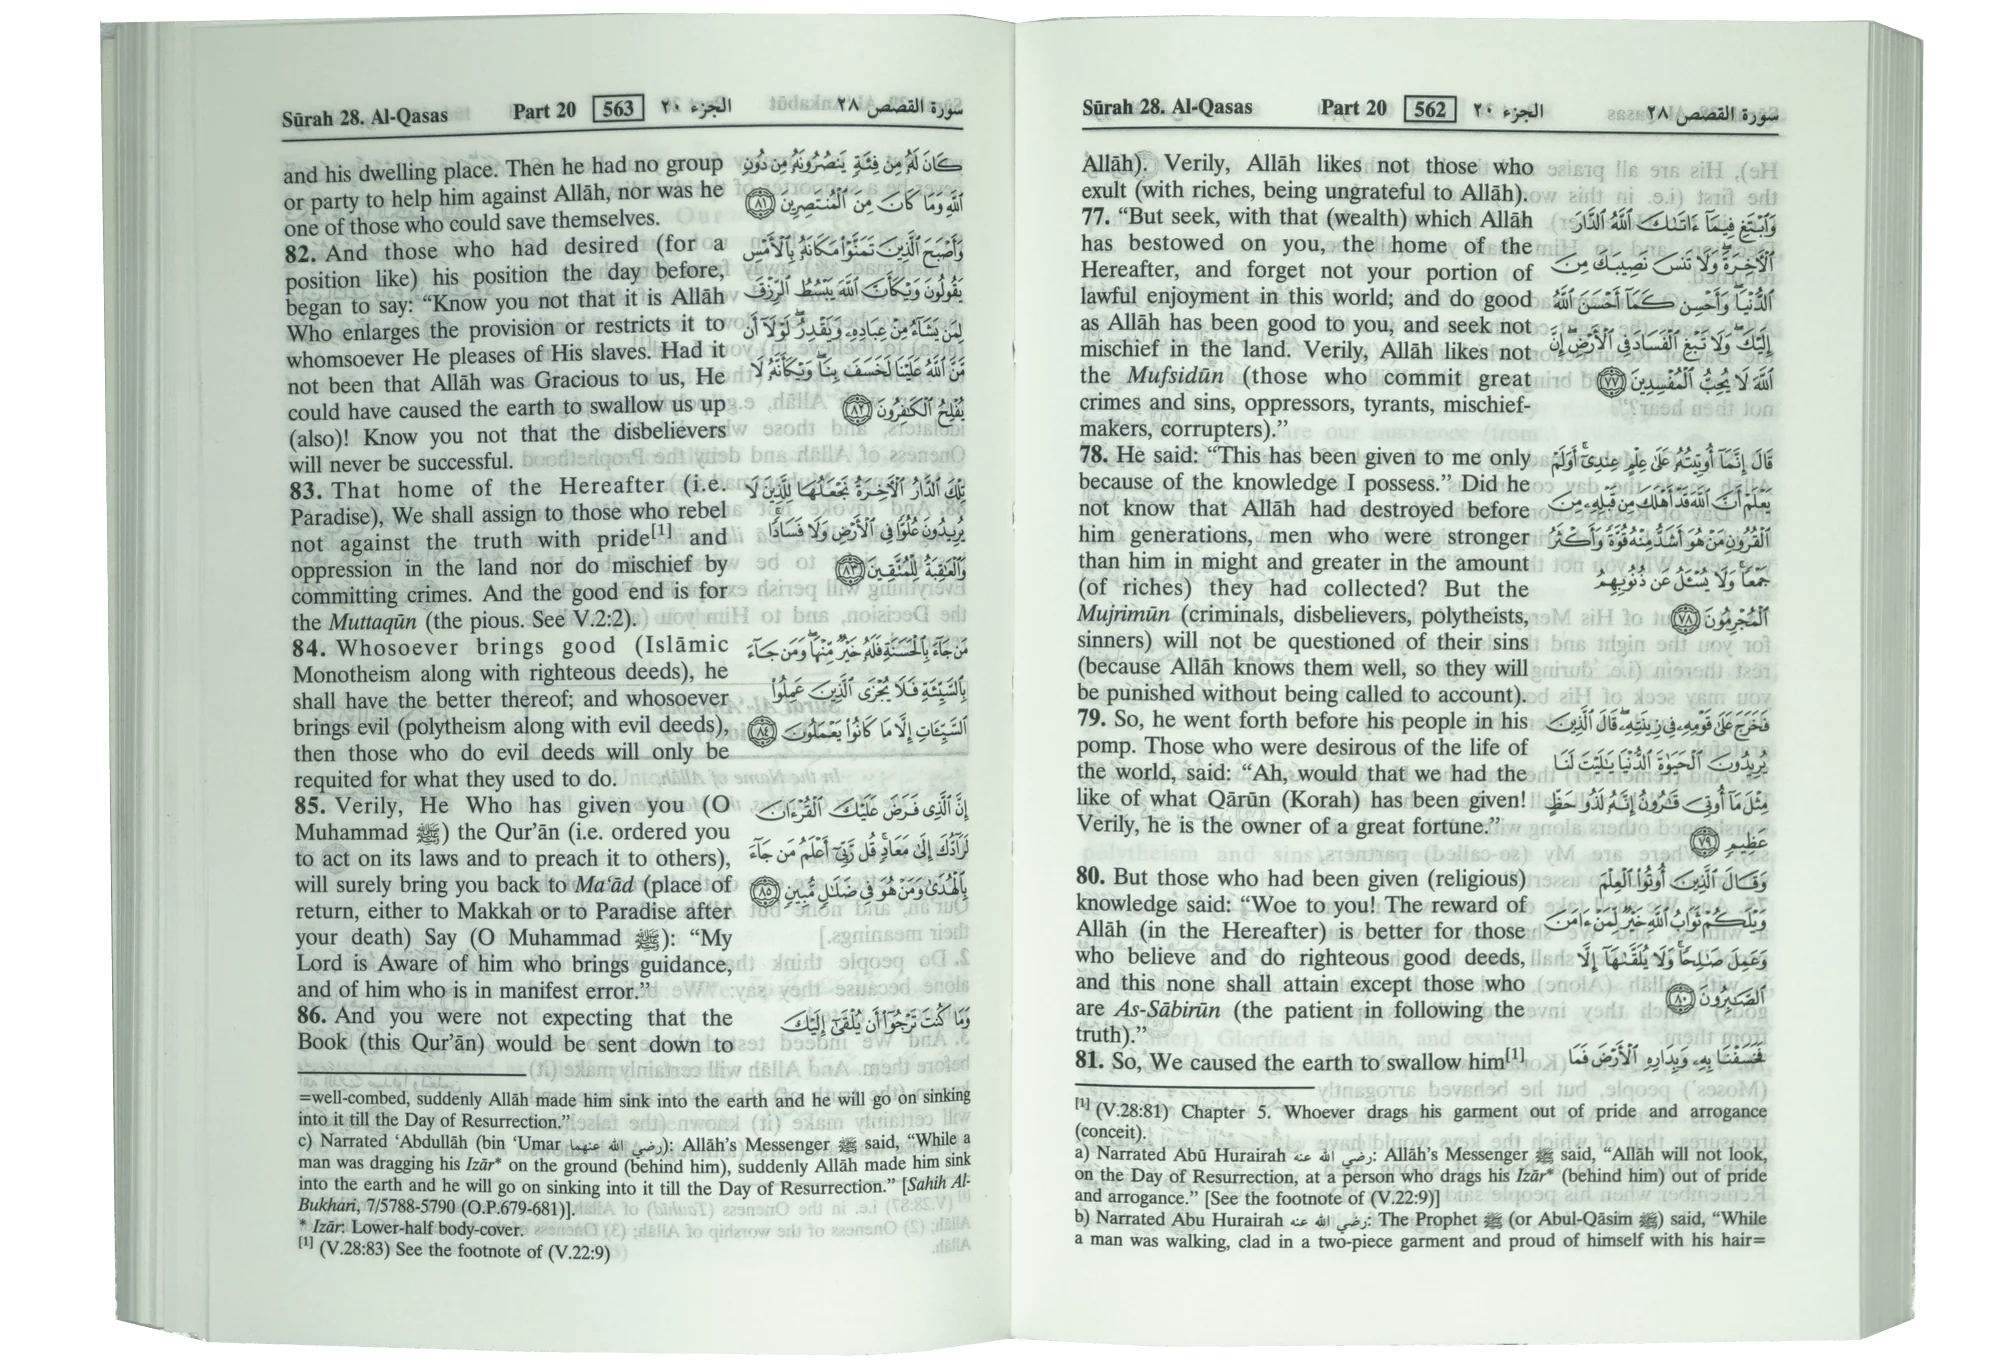 Sūrah 28. Al-Qasas Part 20 562 الجزء ٢٠ سورة القصص ٢٨
Allāh). Verily, Allāh likes not those who
exult (with riches, being ungrateful to Allāh).
77. “But seek, with that (wealth) which Allāh
has bestowed on you, the home of the
Hereafter, and forget not your portion of
lawful enjoyment in this world; and do good
as Allāh has been good to you, and seek not
mischief in the land. Verily, Allāh likes not
the Mufsidūn (those who commit great
crimes and sins, oppressors, tyrants, mischief-
makers, corrupters).”
78. He said: “This has been given to me only
because of the knowledge I possess.” Did he
not know that Allāh had destroyed before
him generations, men who were stronger
than him in might and greater in the amount
(of riches) they had collected? But the
Mujrimūn (criminals, disbelievers, polytheists,
sinners) will not be questioned of their sins
(because Allāh knows them well, so they will
be punished without being called to account).
79. So, he went forth before his people in his
pomp. Those who were desirous of the life of
the world, said: “Ah, would that we had the
like of what Qārūn (Korah) has been given!
Verily, he is the owner of a great fortune.”
80. But those who had been given (religious)
knowledge said: “Woe to you! The reward of
Allāh (in the Hereafter) is better for those
who believe and do righteous good deeds,
and this none shall attain except those who
are As-Sābirūn (the patient in following the
truth).”
81. So, We caused the earth to swallow him[1]
وَٱبْتَغِ فِيمَآ ءَاتَىٰكَ ٱللَّهُ ٱلدَّارَ
ٱلْءَاخِرَةَ ۖ وَلَا تَنسَ نَصِيبَكَ مِنَ
ٱلدُّنْيَا ۖ وَأَحْسِن كَمَآ أَحْسَنَ ٱللَّهُ
إِلَيْكَ ۖ وَلَا تَبْغِ ٱلْفَسَادَ فِى ٱلْأَرْضِ ۖ إِنَّ
ٱللَّهَ لَا يُحِبُّ ٱلْمُفْسِدِينَ ٧٧
قَالَ إِنَّمَآ أُوتِيتُهُۥ عَلَىٰ عِلْمٍ عِندِىٓ ۚ أَوَلَمْ
يَعْلَمْ أَنَّ ٱللَّهَ قَدْ أَهْلَكَ مِن قَبْلِهِۦ مِنَ
ٱلْقُرُونِ مَنْ هُوَ أَشَدُّ مِنْهُ قُوَّةً وَأَكْثَرُ
جَمْعًا ۚ وَلَا يُسْـَٔلُ عَن ذُنُوبِهِمُ
ٱلْمُجْرِمُونَ ٧٨
فَخَرَجَ عَلَىٰ قَوْمِهِۦ فِى زِينَتِهِۦ ۖ قَالَ ٱلَّذِينَ
يُرِيدُونَ ٱلْحَيَوٰةَ ٱلدُّنْيَا يَٰلَيْتَ لَنَا
مِثْلَ مَآ أُوتِىَ قَٰرُونُ إِنَّهُۥ لَذُو حَظٍّ
عَظِيمٍ ٧٩
وَقَالَ ٱلَّذِينَ أُوتُوا۟ ٱلْعِلْمَ
وَيْلَكُمْ ثَوَابُ ٱللَّهِ خَيْرٌ لِّمَنْ ءَامَنَ
وَعَمِلَ صَٰلِحًا ۚ وَلَا يُلَقَّىٰهَآ إِلَّا
ٱلصَّٰبِرُونَ ٨٠
فَخَسَفْنَا بِهِۦ وَبِدَارِهِ ٱلْأَرْضَ فَمَا
[1] (V.28:81) Chapter 5. Whoever drags his garment out of pride and arrogance
(conceit).
a) Narrated Abū Hurairah رضي الله عنه: Allāh’s Messenger ﷺ said, “Allāh will not look,
on the Day of Resurrection, at a person who drags his Izār* (behind him) out of pride
and arrogance.” [See the footnote of (V.22:9)]
b) Narrated Abu Hurairah رضي الله عنه: The Prophet ﷺ (or Abul-Qāsim ﷺ) said, “While
a man was walking, clad in a two-piece garment and proud of himself with his hair=
Sūrah 28. Al-Qasas Part 20 563 الجزء ٢٠ سورة القصص ٢٨
and his dwelling place. Then he had no group
or party to help him against Allāh, nor was he
one of those who could save themselves.
82. And those who had desired (for a
position like) his position the day before,
began to say: “Know you not that it is Allāh
Who enlarges the provision or restricts it to
whomsoever He pleases of His slaves. Had it
not been that Allāh was Gracious to us, He
could have caused the earth to swallow us up
(also)! Know you not that the disbelievers
will never be successful.
83. That home of the Hereafter (i.e.
Paradise), We shall assign to those who rebel
not against the truth with pride[1] and
oppression in the land nor do mischief by
committing crimes. And the good end is for
the Muttaqūn (the pious. See V.2:2).
84. Whosoever brings good (Islāmic
Monotheism along with righteous deeds), he
shall have the better thereof; and whosoever
brings evil (polytheism along with evil deeds),
then those who do evil deeds will only be
requited for what they used to do.
85. Verily, He Who has given you (O
Muhammad ﷺ) the Qur’ān (i.e. ordered you
to act on its laws and to preach it to others),
will surely bring you back to Ma‘ād (place of
return, either to Makkah or to Paradise after
your death) Say (O Muhammad ﷺ): “My
Lord is Aware of him who brings guidance,
and of him who is in manifest error.”
86. And you were not expecting that the
Book (this Qur’ān) would be sent down to
كَانَ لَهُۥ مِن فِئَةٍ يَنصُرُونَهُۥ مِن دُونِ
ٱللَّهِ وَمَا كَانَ مِنَ ٱلْمُنتَصِرِينَ ٨١
وَأَصْبَحَ ٱلَّذِينَ تَمَنَّوْا۟ مَكَانَهُۥ بِٱلْأَمْسِ
يَقُولُونَ وَيْكَأَنَّ ٱللَّهَ يَبْسُطُ ٱلرِّزْقَ
لِمَن يَشَآءُ مِنْ عِبَادِهِۦ وَيَقْدِرُ ۖ لَوْلَآ أَن
مَّنَّ ٱللَّهُ عَلَيْنَا لَخَسَفَ بِنَا ۖ وَيْكَأَنَّهُۥ لَا
يُفْلِحُ ٱلْكَٰفِرُونَ ٨٢
تِلْكَ ٱلدَّارُ ٱلْءَاخِرَةُ نَجْعَلُهَا لِلَّذِينَ لَا
يُرِيدُونَ عُلُوًّا فِى ٱلْأَرْضِ وَلَا فَسَادًا ۚ
وَٱلْعَٰقِبَةُ لِلْمُتَّقِينَ ٨٣
مَن جَآءَ بِٱلْحَسَنَةِ فَلَهُۥ خَيْرٌ مِّنْهَا ۖ وَمَن جَآءَ
بِٱلسَّيِّئَةِ فَلَا يُجْزَى ٱلَّذِينَ عَمِلُوا۟
ٱلسَّيِّـَٔاتِ إِلَّا مَا كَانُوا۟ يَعْمَلُونَ ٨٤
إِنَّ ٱلَّذِى فَرَضَ عَلَيْكَ ٱلْقُرْءَانَ
لَرَآدُّكَ إِلَىٰ مَعَادٍ ۚ قُل رَّبِّىٓ أَعْلَمُ مَن جَآءَ
بِٱلْهُدَىٰ وَمَنْ هُوَ فِى ضَلَٰلٍ مُّبِينٍ ٨٥
وَمَا كُنتَ تَرْجُوٓا۟ أَن يُلْقَىٰٓ إِلَيْكَ
=well-combed, suddenly Allāh made him sink into the earth and he will go on sinking
into it till the Day of Resurrection.”
c) Narrated ‘Abdullāh (bin ‘Umar رضي الله عنهما): Allāh’s Messenger ﷺ said, “While a
man was dragging his Izār* on the ground (behind him), suddenly Allāh made him sink
into the earth and he will go on sinking into it till the Day of Resurrection.” [Sahih Al-
Bukhari, 7/5788-5790 (O.P.679-681)].
* Izār: Lower-half body-cover.
[1] (V.28:83) See the footnote of (V.22:9)